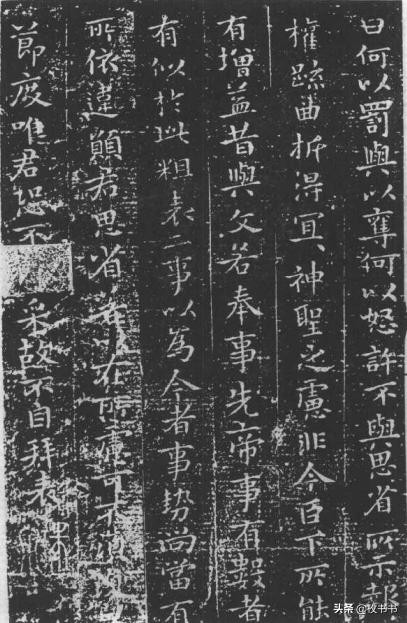 曰何以罰與以奪何以怒許不與思省所示報
權疏曲折得宜〻神聖之慮非今臣下所能
有增益昔與文若奉事先帝事有數者
有似於此粗表二事以為今者事勢尚當有
所依違願君思省若以在所慮可不
節度唯君恐不采故不自拜表
头条 @牧书书